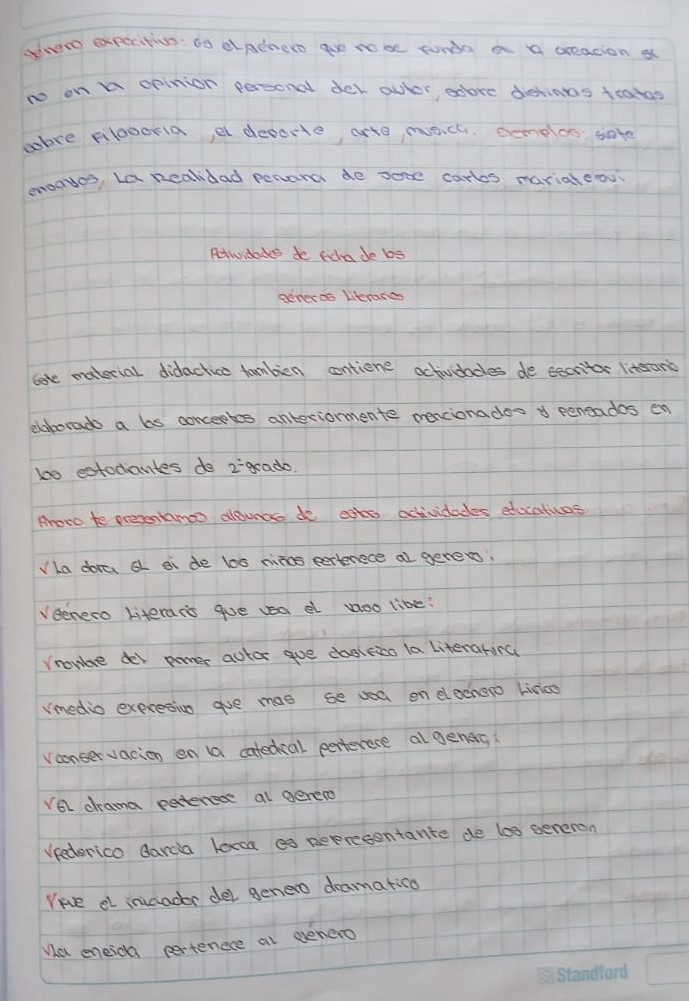 género expositivo: es el género que no se funda en la creacion si
no en la opinion personal del autor, sobre distintas tratas
sobre Filosofia, el deporte, arte, musica. Ejemplos: siete
ensayos, La Realidad Peruana de Jose carlos mariategui.
Actividades de ficha de los
géneros Literarios
este material didactico tambien contiene actividades de escritor literario
elaborado a los conceptos anteriormente mencionados y pensados en
los estodiantes de 2° grado.
Ahora te presentamos algunas de estas actividades educativas
√ La obra el si de los niños pertenece al genero:
√ Género Literario que usa el libre:
√ nombre del primer autor que clasifico la Literatura
√ medio expresivo que mas se usa en el género Lirico
√ conservacion en la catedral pertenece al genero:
√ El drama pertenece al genero
√ Federico Garcia Lorca es Representante de los generon
√ Fue el iniciador del genero dramatico
√ La eneida pertenece al género
Standford